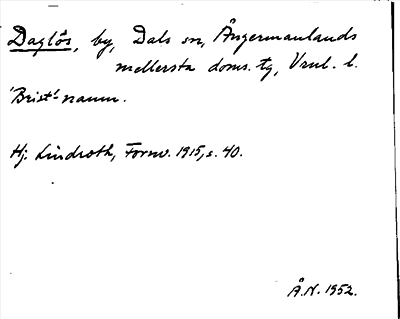 Daglös, by, Dals sn, Ångermanlands
mellersta doms. tg, Vnl. l.
'Brist'-namn.
Hj. Lindroth, Fornv. 1915, s. 40.
Å.N. 1952.